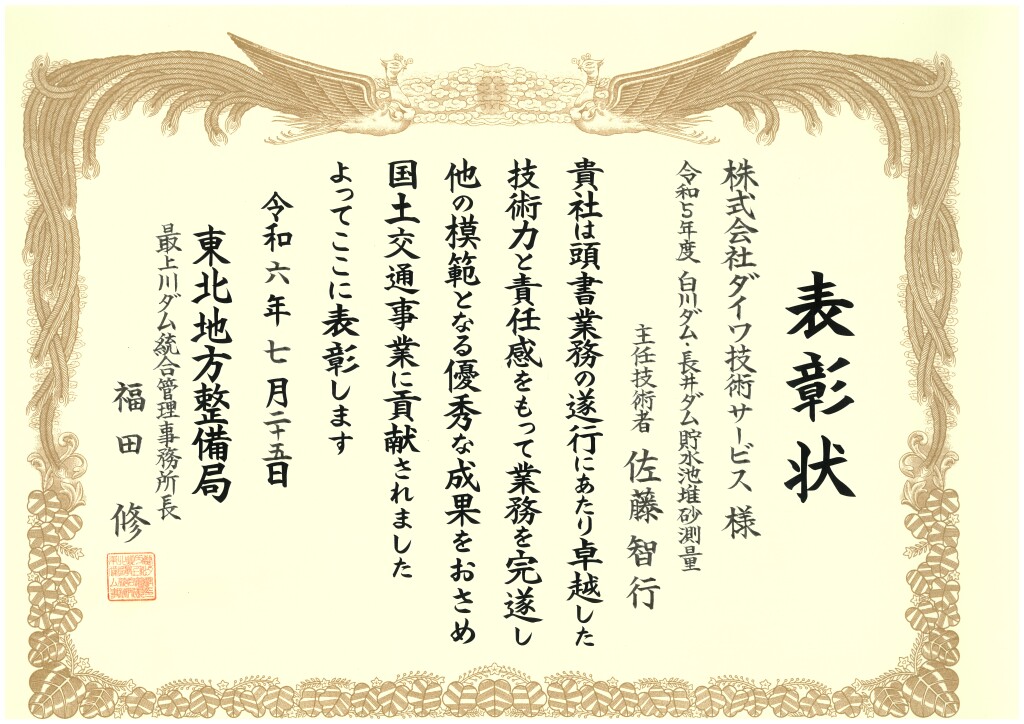 表彰状
株式会社ダイワ技術サービス 様
令和5年度 白川ダム・長井ダム貯水池堆砂測量
主任技術者 佐藤智行
貴社は頭書業務の遂行にあたり卓越した
技術力と責任感をもって業務を完遂し
他の模範となる優秀な成果をおさめ
国土交通事業に貢献されました
よってここに表彰します
令和六年七月二十五日
東北地方整備局
最上川ダム統合管理事務所長
福田 修